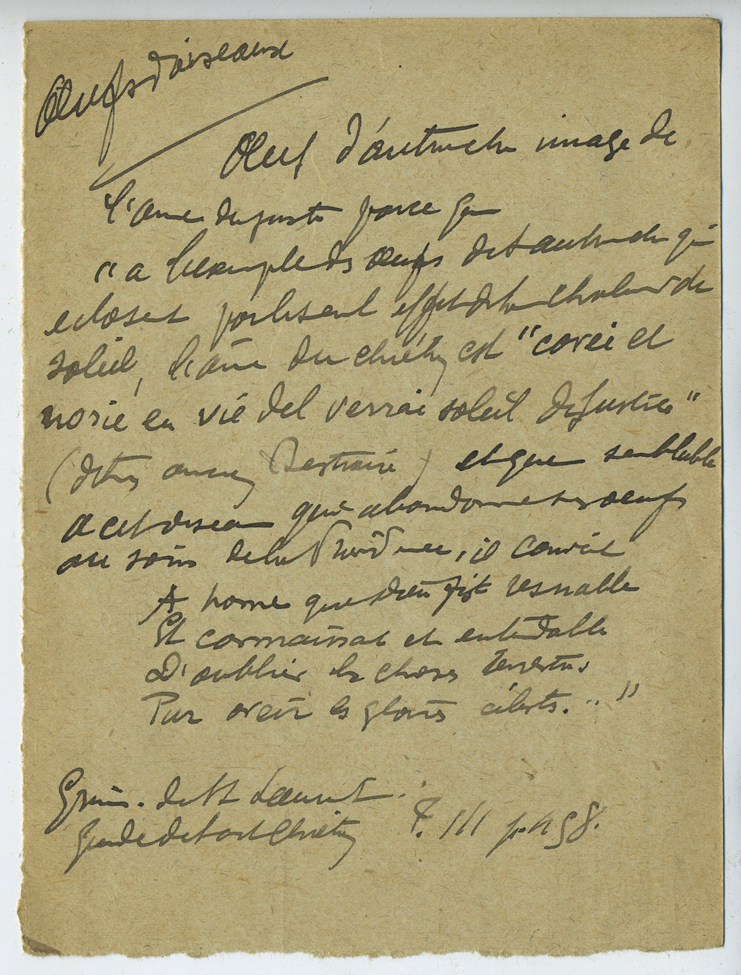 Œufs d'oiseaux
Œuf d'autruche image de
l'ame du juste parce que
"a l'exemple des œufs de l'autruche qui
eclosent par le seul effet de la chaleur du
soleil, l'ame du chrétien est "covée et
norie en vie del verrai soleil de justice"
(dit un ancien Bestiaire) et que semblable
a cet oiseau qui abandonne ses oeufs
au soin de la Providence, il convient
A home que Dieu fist resnable
Et connaissat et entendable
D'oublier les choses terrestres
Pur aveir les gloires célestes..."
Grim. de St Laurent.
Guide de l'art Chrétien T. III p.